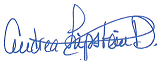 Andrea Lipstein D.